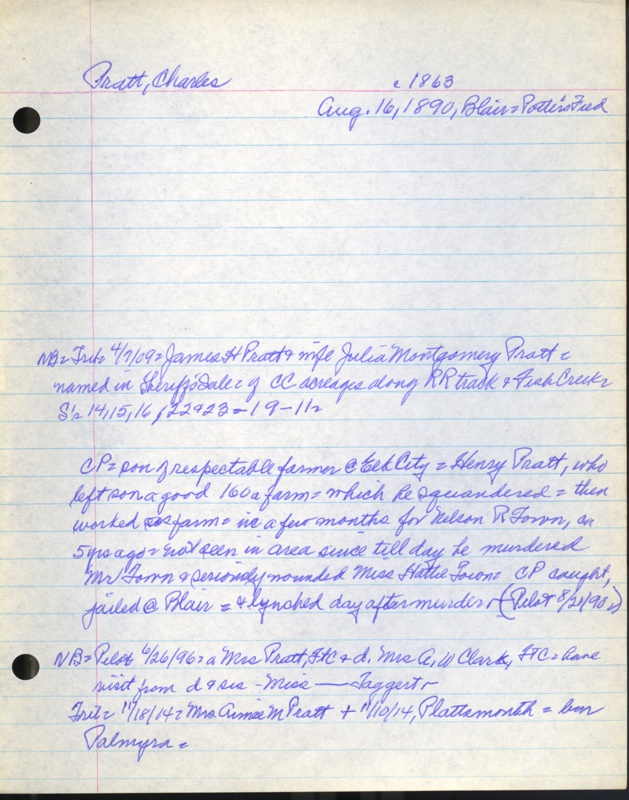 Pratt, Charles c 1863
Aug. 16, 1890, Blair = Potter's Field
NB = Trib = 4/7/09 = James H Pratt & wife Julia Montgomery Pratt =
named in Sheriff's Sale = of CC acreages along RR track & Fish Creek =
S's 14, 15, 16, 22 & 23 = 19 - 11 =
CP = son of respectable farmer @ Elk City = Henry Pratt, who
left son a good 160 a farm = which he squandered = then
worked farm = in a few months for Nelson R Town, ca
5 yrs ago = not seen in area since till day he murdered
Mr Town & seriously wounded Miss Hattie Town = CP caught,
jailed @ Blair = & lynched day after murder. (Pilot 8/21/90)
NB = Pilot 6/26/96 = a Mrs Pratt, FtC & d. Mrs A. W Clark, FtC = have
visit from d & sis - Miss — Taggert
Trib = 11/18/14 = Mrs Aimee M Pratt + 11/10/14, Plattsmouth = bur
Palmyra =